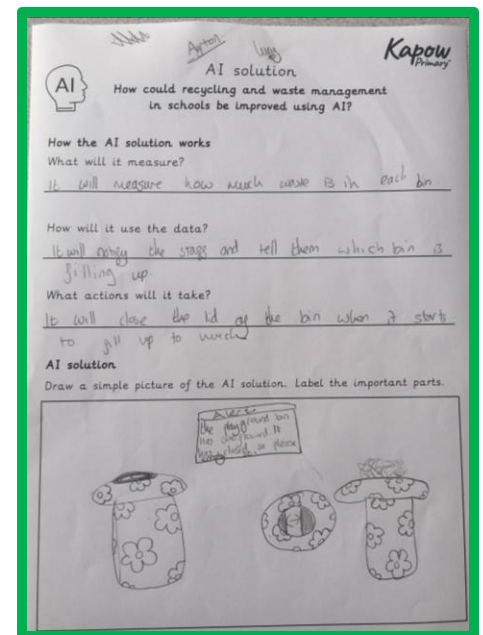 Ayton Lucy
Kapow
Primary
AI
AI solution
How could recycling and waste management
in schools be improved using AI?
How the AI solution works
What will it measure?
It will measure how much waste is in each bin.
How will it use the data?
It will notify the staff and tell them which bin is
filling up.
What actions will it take?
It will close the lid of the bin when it starts
to fill up to much
AI solution
Draw a simple picture of the AI solution. Label the important parts.
Alert
the playground bin
has It
has closed so please